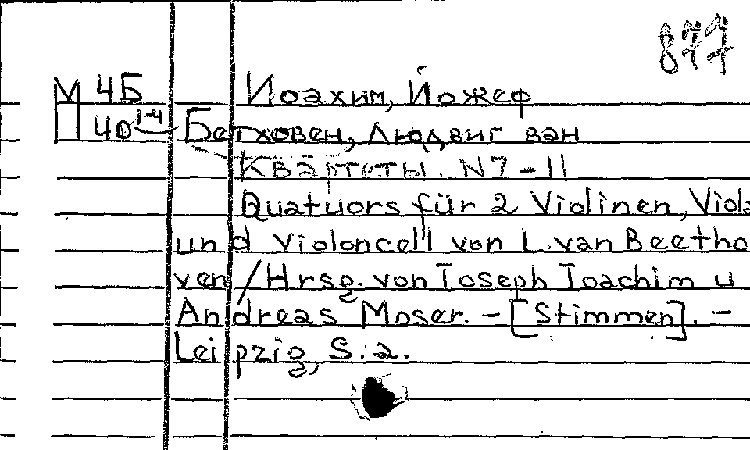 877
М 4Б Иоахим, Йожеф
П 40 1-4 Бетховен, Людвиг ван
Квартеты. N 7-11
Quatuors für 2 Violinen, Viola
und Violoncell von L. van Beetho
ven / Hrsg. von Joseph Joachim u
Andreas Moser. - [Stimmen]. -
Leipzig, S. a.